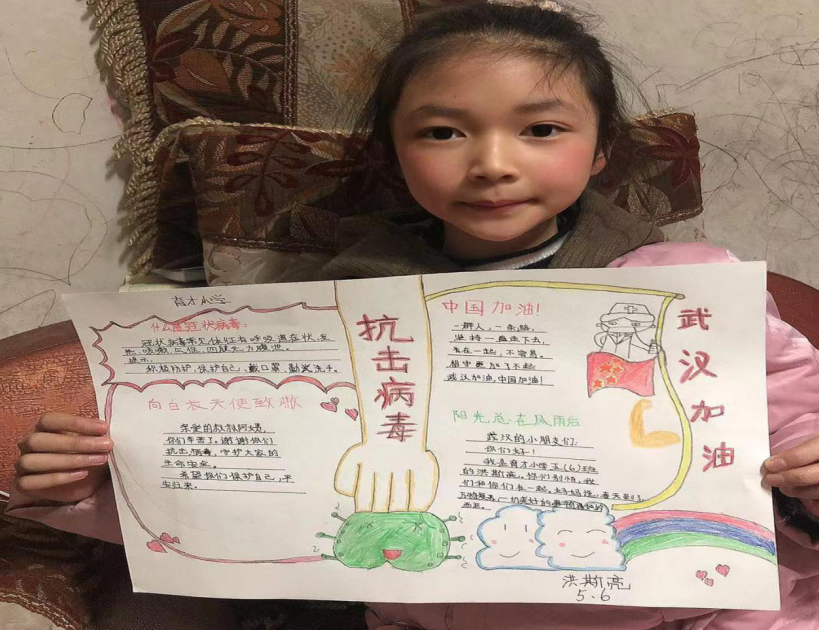 育才小学
什么是冠状病毒:
冠状病毒常见体征有呼吸道症状、发
热、咳嗽、气促、四肢无力腹泄。
积极防护，保护自己，戴口罩，勤洗手。
向白衣天使致敬
亲爱的叔叔阿姨，
你们辛苦了，谢谢你们
抗击病毒，守护大家的
生命安全。
希望你们保护自己，平
安归来。
抗
击
病
毒
中国加油!
一群人，一条路，
坚持一直走下去，
在一起，不容易，
相守更加了不起
武汉加油，中国加油!
阳光总在风雨后
武汉的小朋友们:
你们好!
我是育才小学五(6)班
的洪斯亮，你们别怕，我
们和你们在一起，妈妈说，春天来了，
万物复苏，一切美好的
武
汉
加
油
洪斯亮
5.6